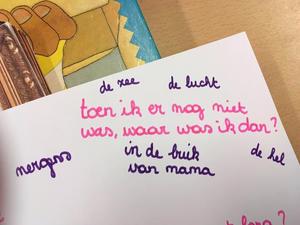 de zee de lucht
toen ik er nog niet
was, waar was ik dan?
nergens in de buik de hel
van mama